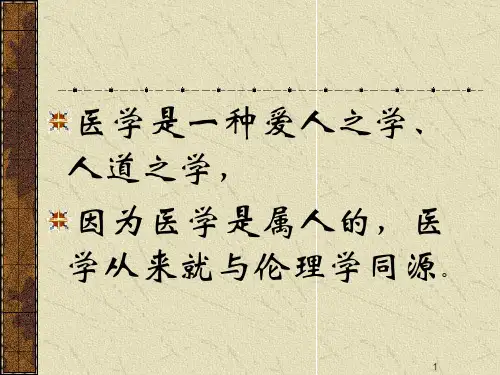 医学是一种爱人之学、
人道之学，
因为医学是属人的，医
学从来就与伦理学同源。
1